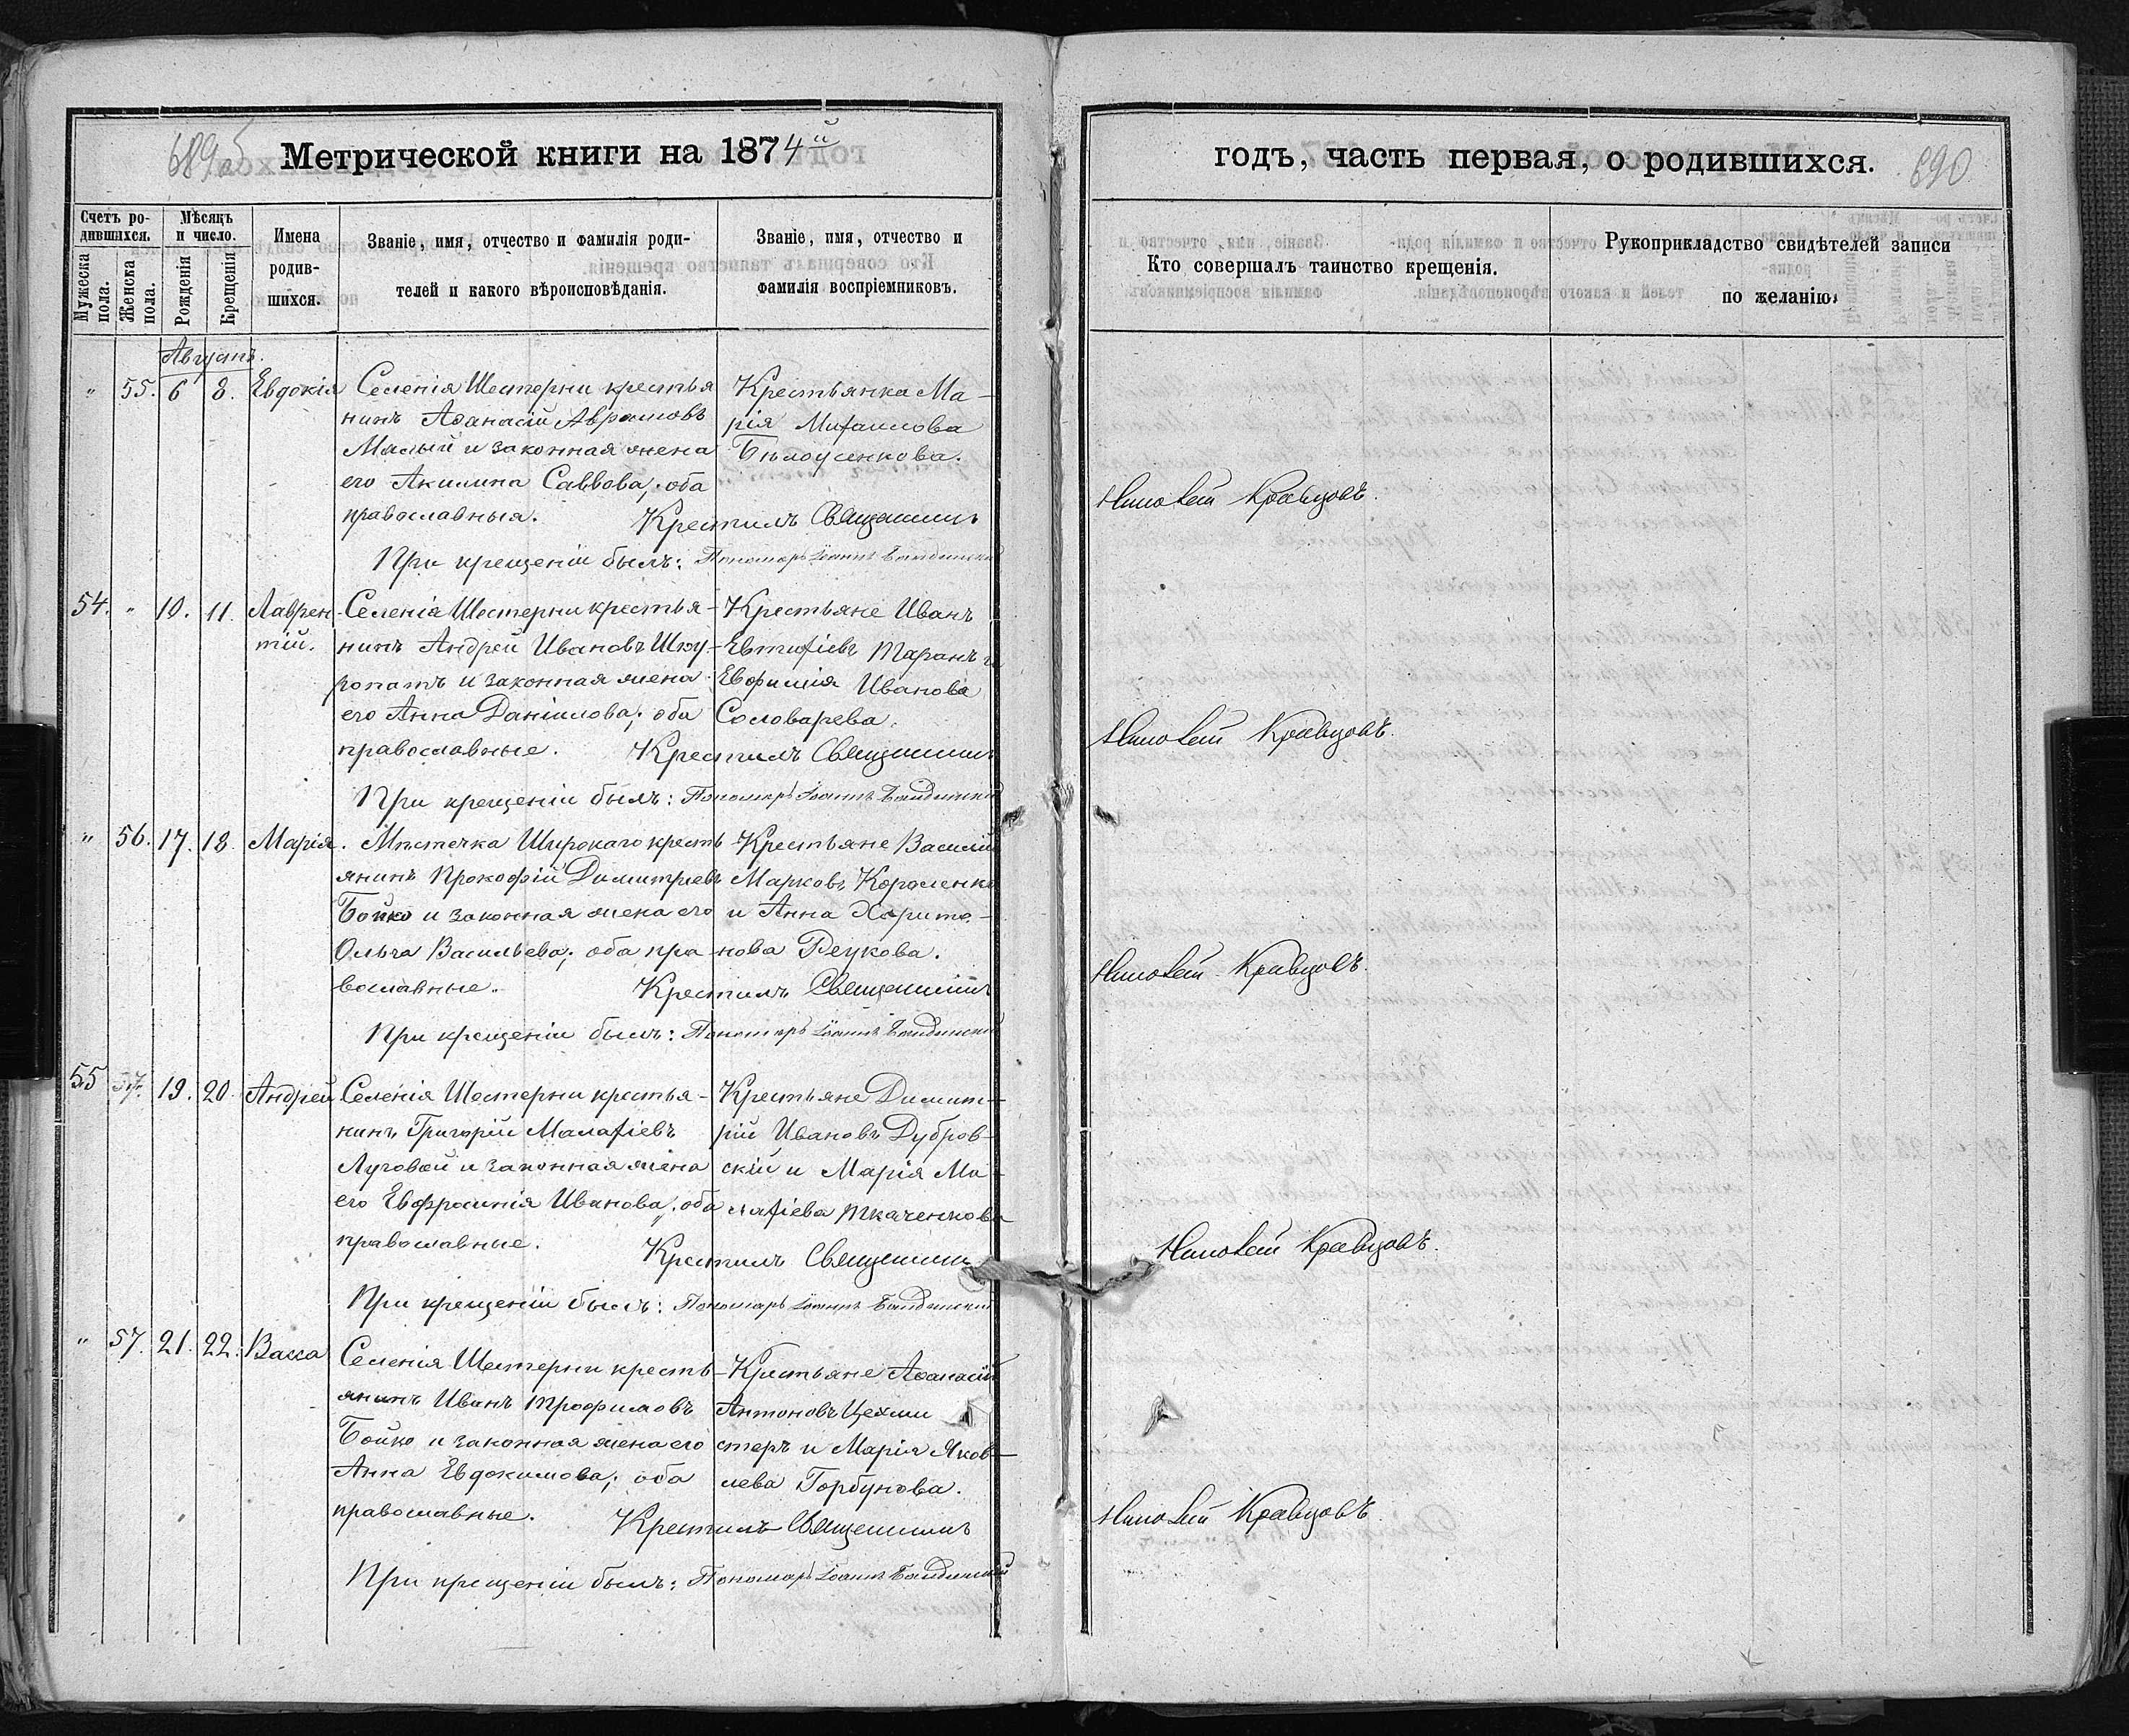 689об
Метрической книги на 1874й
годъ, часть первая, о родившихся.
690
Счетъ ро-
дившихся.
Мужеска
пола.
Женска
пола.
Мѣсяцъ
и число.
Рожденія
Крещенія
Имена
родив-
шихся.
Званіе, имя, отчество и фамилія роди-
телей и какого вѣроисповѣданія.
Званіе, имя, отчество и
фамилія воспріемниковъ.
Кто совершалъ таинство крещенія.
Рукоприкладство свидѣтелей записи
по желанію.
Августъ.
" 55. 6 8. Евдокія
Селенія Шестерни крестья
нинъ Аѳанасій Аврамовъ
Малый и законная жена
его Акилина Саввова; оба
православныя.
Крестьянка Ма-
рія Михаилова
Бѣлоусенкова.
Крестилъ Священникъ
Николай Кравцовъ.
При крещеніи былъ: Пономарь Іоаннъ
54. " 10. 11. Лаврен-
тій.
Селенія Шестерни крестья-
нинъ Андрей Ивановъ Шку-
ропатъ и законная жена
его Анна Даніилова; оба
православные.
Крестьяне Иванъ
Евтихіевъ Таранъ и
Евфимія Иванова
Соловарева.
Крестилъ Священникъ
Николай Кравцовъ.
При крещеніи былъ: Пономарь Іоаннъ
" 56. 17. 18. Марія.
Мѣстечка Широкаго кресть
янинъ Прокофій Димитріевъ
Бойко и законная жена его
Ольга Васильева; оба пра-
вославные.
Крестьяне Василій
Марковъ Короленко
и Анна Харито-
нова Реукова.
Крестилъ Священникъ
Николай Кравцовъ.
При крещеніи былъ: Пономарь Іоаннъ
55 57. 19. 20. Андрей
Селенія Шестерни крестья-
нинъ Григорій Малахіевъ
Луговой и законная жена
его Евфросинія Иванова; оба
православные.
Крестьяне Димит-
рій Ивановъ Дубров-
скій и Марія Ма-
лахіева Ткаченкова
Крестилъ Священникъ
Николай Кравцовъ.
При крещеніи былъ: Пономарь Іоаннъ
" 57. 21. 22. Васса
Селенія Шестерни кресть-
янинъ Иванъ Трофимовъ
Бойко и законная жена его
Анна Евдокимова; оба
православные.
Крестьяне Аѳанасій
Антоновъ Цехми
стеръ и Марія Яков-
лева Горбунова.
Крестилъ Священникъ
Николай Кравцовъ.
При крещеніи былъ: Пономарь Іоаннъ